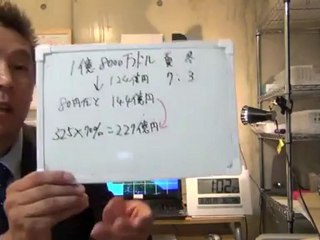 1億8000万ドル 貴 景
↓ 124億円 7:3
80円だと 144億円
325×70%=227億円